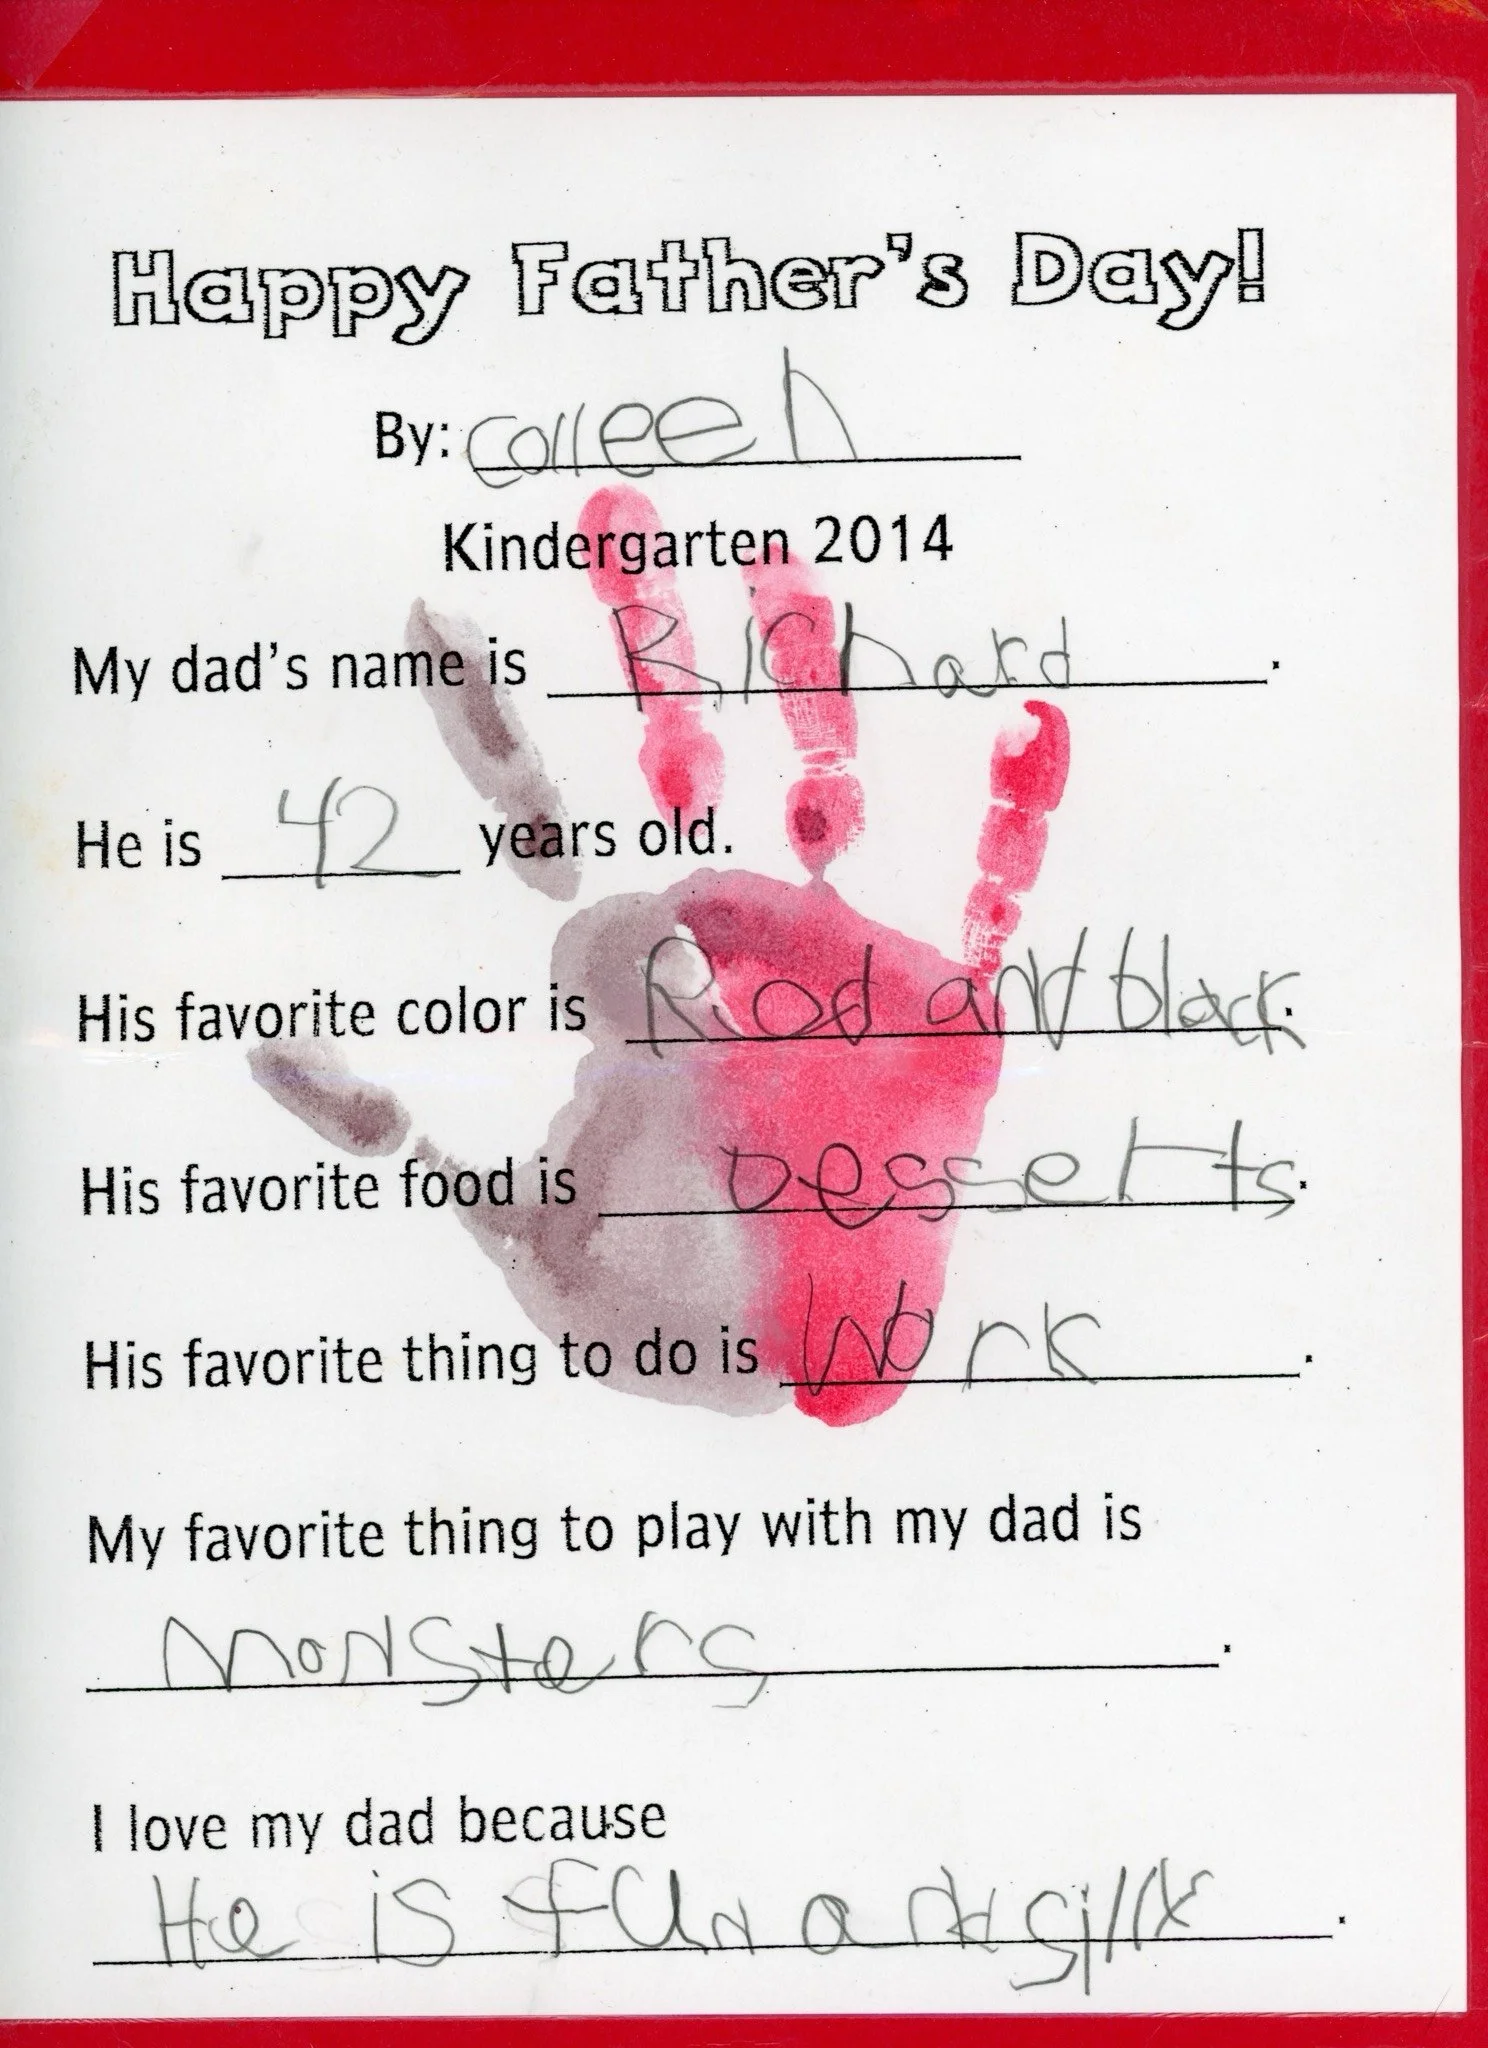 Happy Father's Day!
By: Colleen
Kindergarten 2014
My dad's name is Richard.
He is 42 years old.
His favorite color is Rod and black.
His favorite food is Desserts.
His favorite thing to do is Work.
My favorite thing to play with my dad is
Monsters.
I love my dad because
He is fun and silly.